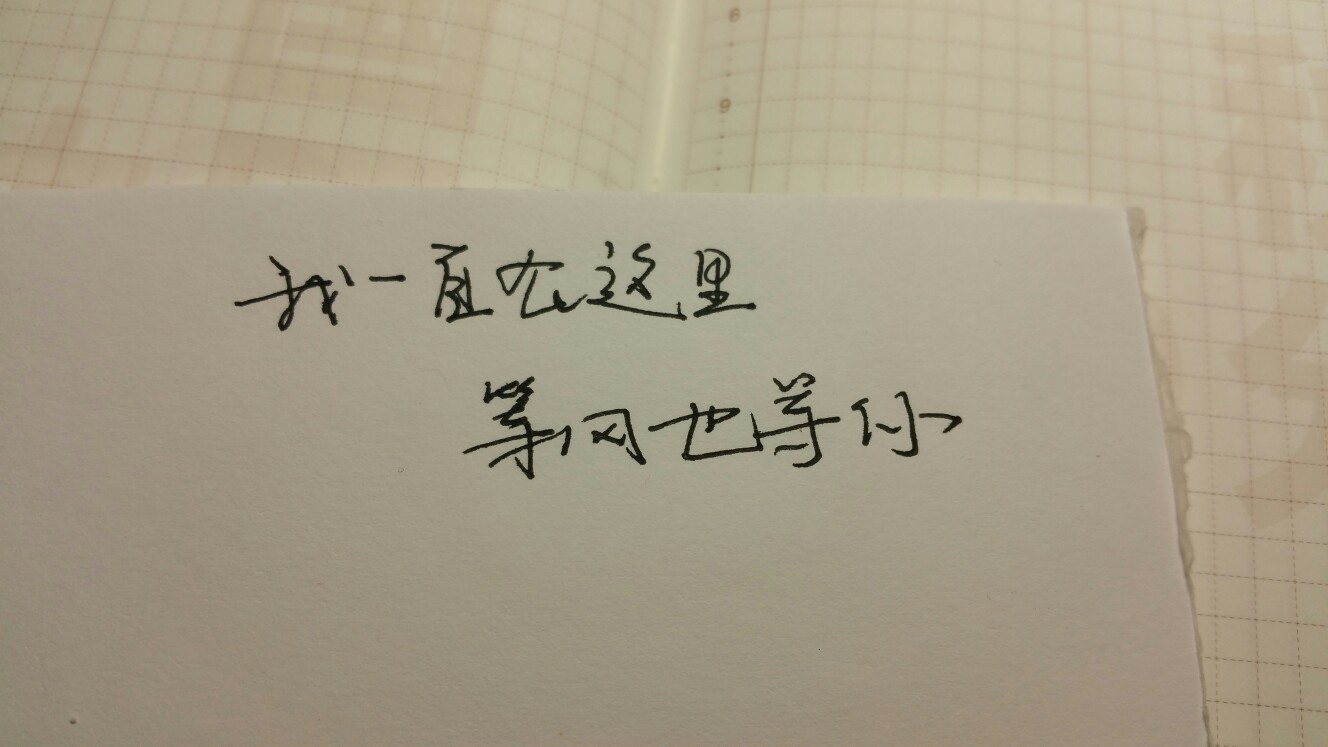 6
9
我一直在这里
等风也等你